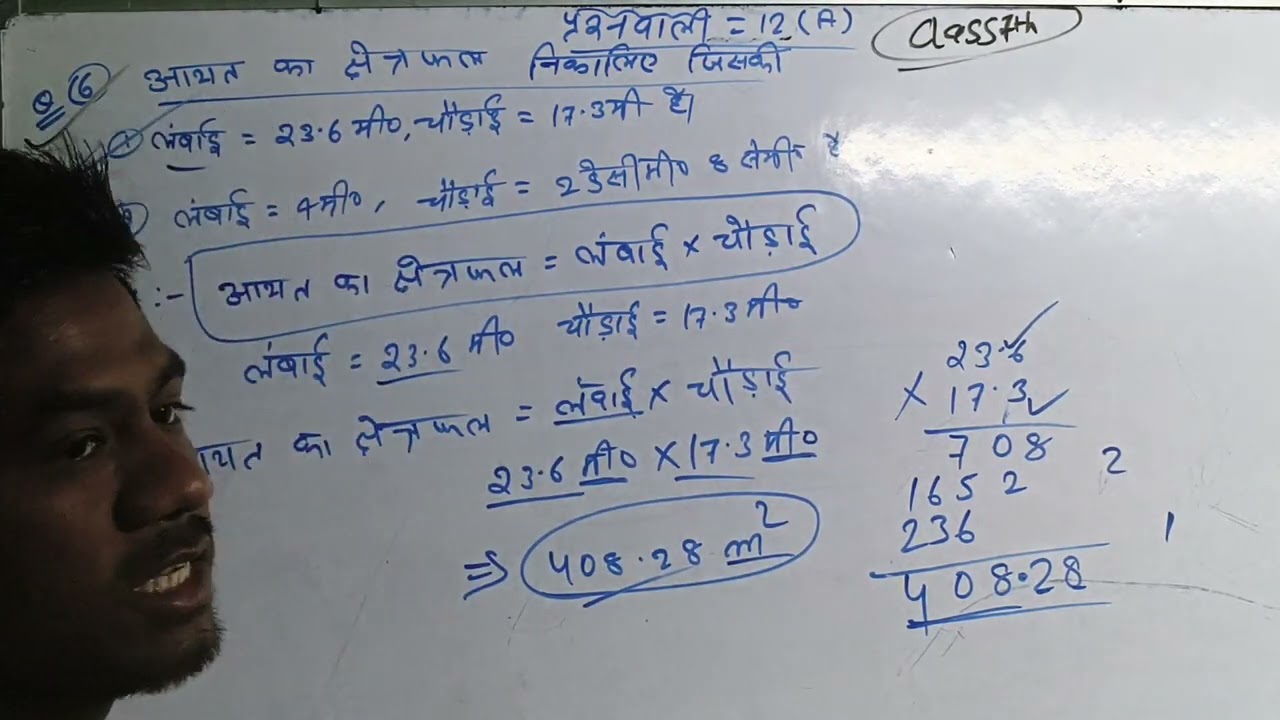 प्रश्नवाली = 12 (A)
Class 7th
Q (6) आयत का क्षेत्रफल निकालिए जिसकी
लंबाई = 23.6 मी०, चौड़ाई = 17.3 मी है।
लंबाई = 4 मी०, चौड़ाई = 2 डेसीमी० 8 सेमी० है
:- आयत का क्षेत्रफल = लंबाई × चौड़ाई
लंबाई = 23.6 मी० चौड़ाई = 17.3 मी०
यत का क्षेत्रफल = लंबाई × चौड़ाई
23.6 मी० × 17.3 मी०
⇒ 408.28 m²
23.6
× 17.3
708
1652 2
236 1
408.28